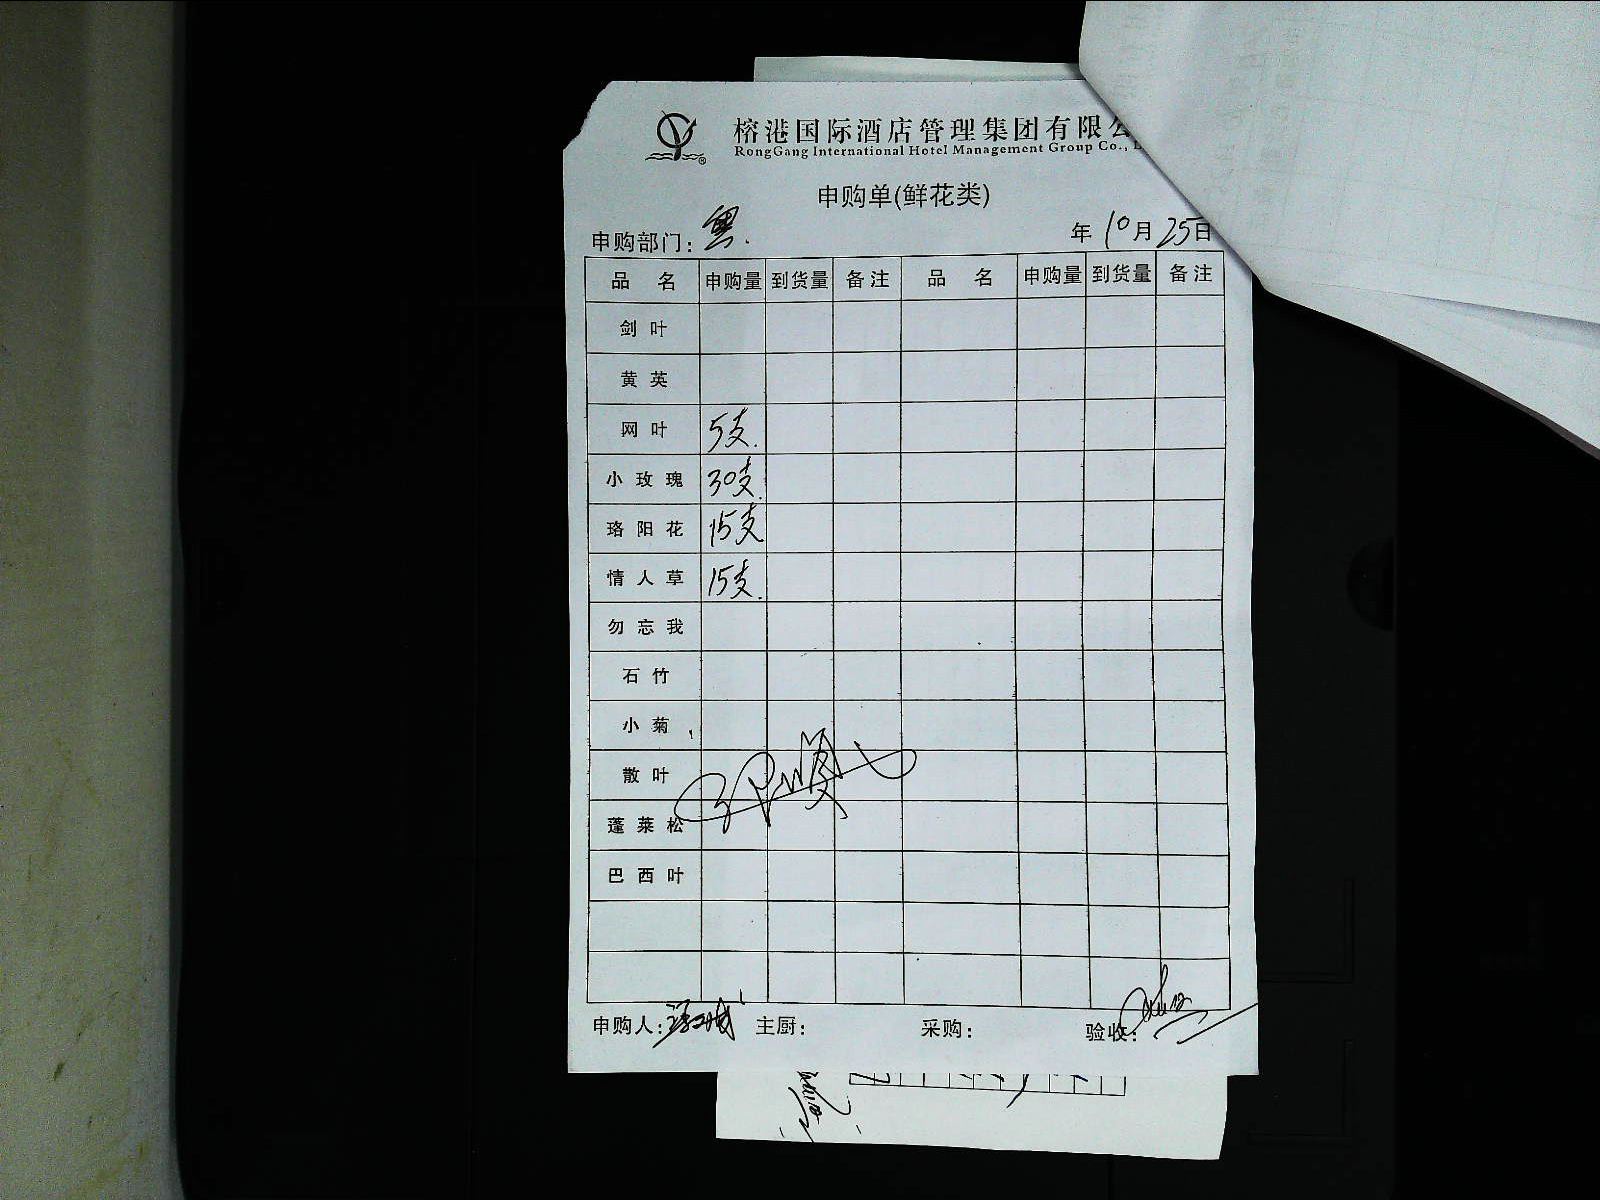 榕港国际酒店管理集团有限公
RongGang International Hotel Management Group Co.,
申购单(鲜花类)
申购部门:
年10月25日
品名 申购量 到货量 备注 品名 申购量 到货量 备注
剑叶
黄英
网叶 5支.
小玫瑰 30支.
珞阳花 15支
情人草 15支.
勿忘我
石竹
小菊
散叶
蓬莱松
巴西叶
申购人: 主厨: 采购: 验收: